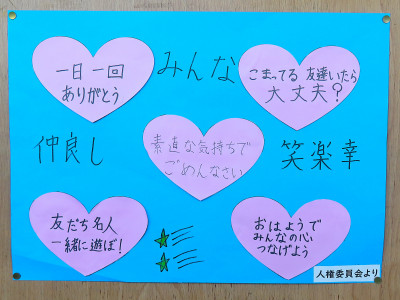 一日一回
ありがとう
みんな
こまってる 友達いたら
大丈夫?
仲良し
素直な気持ちで
ごめんなさい
笑楽幸
友だち名人
一緒に遊ぼ!
おはようで
みんなの心
つなげよう
人権委員会より